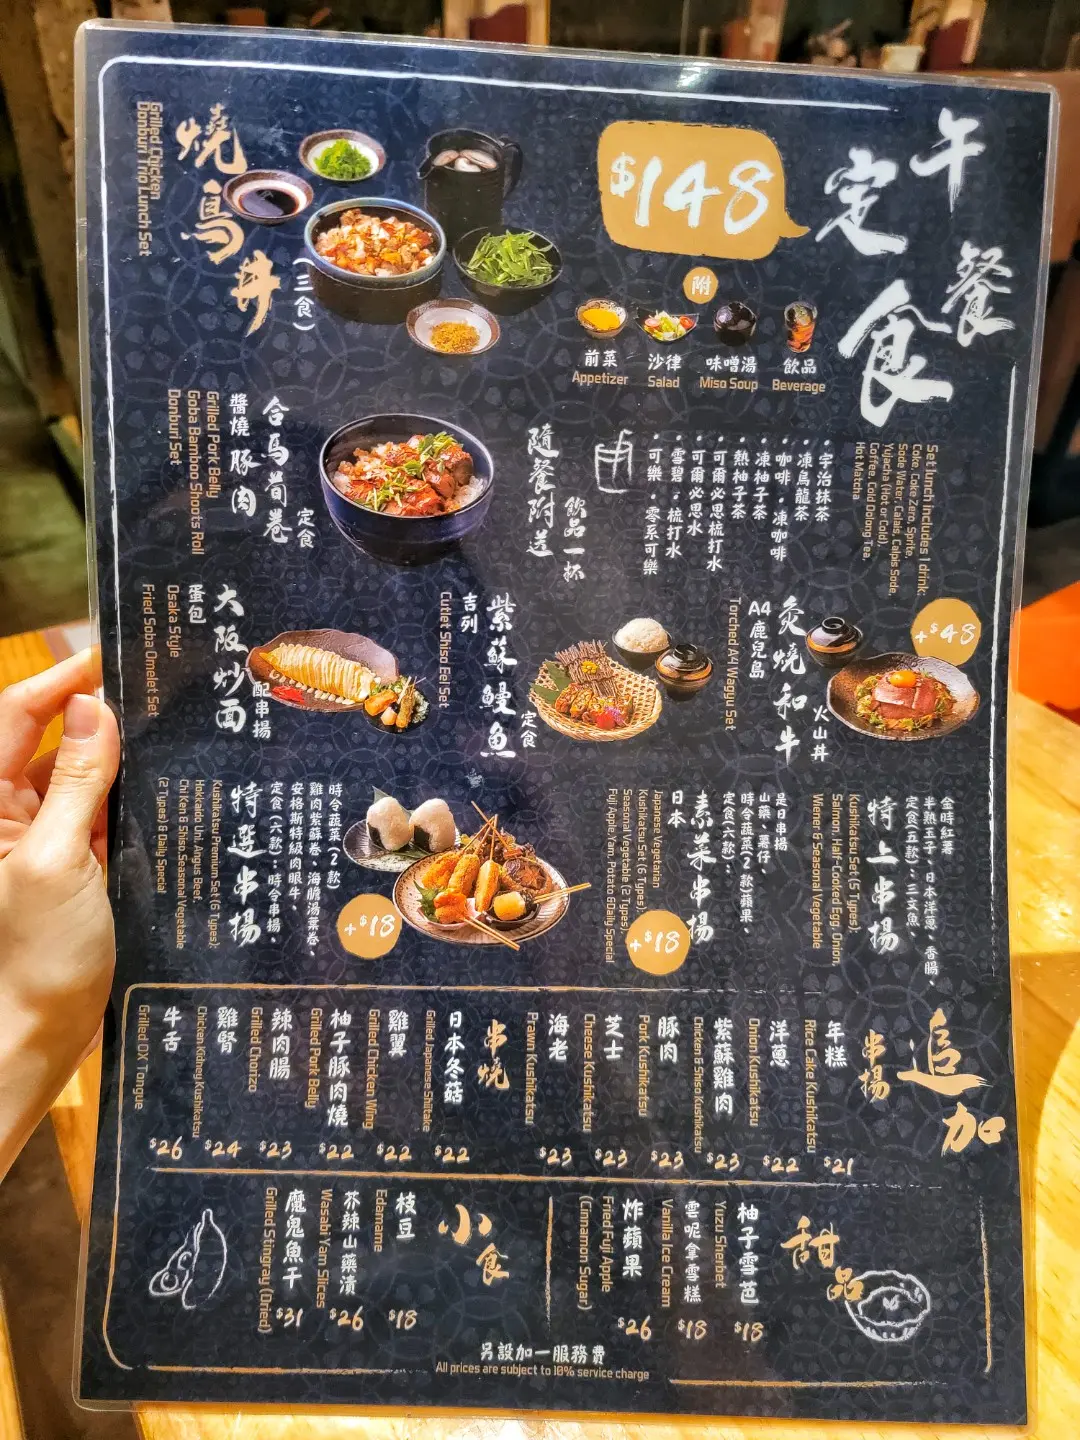 午餐
定食
$148
附
前菜
Appetizer
沙律
Salad
味噌湯
Miso Soup
飲品
Beverage
燒鳥丼
(三食)
Grilled Chicken
Donburi Trio Lunch Set
Set lunch includes 1 drink:
Coke, Coke Zero, Sprite,
Soda Water, Calpis, Calpis Soda,
Yuzucha (Hot or Cold),
Coffee, Cold Oolong Tea,
Hot Matcha
・宇治抹茶
・凍烏龍茶
・咖啡・凍咖啡
・凍柚子茶
・熱柚子茶
・可爾必思梳打水
・可爾必思水
・雪碧・梳打水
・可樂・零系可樂
隨餐附送
飲品一杯
合馬荀卷
定食
醬燒豚肉
Grilled Pork Belly
Goba Bamboo Shoots Roll
Donburi Set
+$48
炙燒和牛
火山丼
A4鹿兒島
Torched A4 Wagyu Set
紫蘇鰻魚
定食
吉列
Cutlet Shiso Eel Set
大阪炒面
配串揚
蛋包
Osaka Style
Fried Soba Omelet Set
特上串揚
定食(五款):三文魚、
半熟玉子、日本洋蔥、香腸、
金時紅薯
Kushikatsu Set (5 Types);
Salmon, Half-Cooked Egg, Onion,
Wiener & Seasonal Vegetable
日本
素菜串揚
定食(六款):
時令蔬菜(2款)蘋果、
山藥、薯仔、
是日串揚
Japanese Vegetarian
Kushikatsu Set (6 Types);
Seasonal Vegetable (2 Types),
Fuji Apple, Yam, Potato & Daily Special
+$18
特選串揚
定食(六款):時令串揚、
安格斯特級肉眼牛、
雞肉紫蘇卷、海膽湯葉卷、
時令蔬菜(2款)
Kushikatsu Premium Set (6 Types);
Hokkaido Uni, Angus Beef,
Chicken & Shiso, Seasonal Vegetable
(2 Types) & Daily Special
+$18
追加
串揚
年糕
Rice Cake Kushikatsu
$21
洋蔥
Onion Kushikatsu
$22
紫蘇雞肉
Chicken & Shiso Kushikatsu
$23
豚肉
Pork Kushikatsu
$23
芝士
Cheese Kushikatsu
$23
海老
Prawn Kushikatsu
$23
串燒
日本冬菇
Grilled Japanese Shiitake
$22
雞翼
Grilled Chicken Wing
$22
柚子豚肉燒
Grilled Pork Belly
$22
辣肉腸
Grilled Chorizo
$23
雞腎
Chicken Kidney Kushikatsu
$24
牛舌
Grilled OX Tongue
$26
甜品
柚子雪芭
Yuzu Sherbet
$18
雲呢拿雪糕
Vanilla Ice Cream
$18
炸蘋果
Fried Fuji Apple
(Cinnamon Sugar)
$26
小食
枝豆
Edamame
$18
芥辣山藥漬
Wasabi Yam Slices
$26
魔鬼魚干
Grilled Stingray (Dried)
$31
另設加一服務費
All prices are subject to 10% service charge